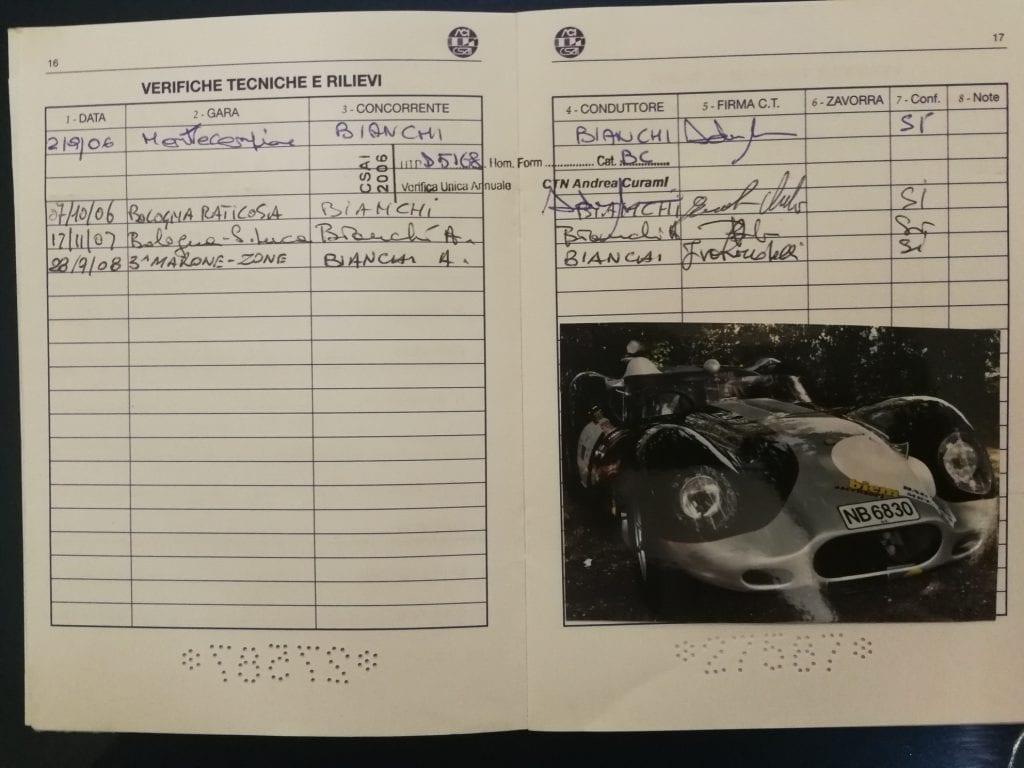 16
VERIFICHE TECNICHE E RILIEVI
1 - DATA 2 - GARA 3 - CONCORRENTE
2/9/06 BIANCHI
CSAI 2006
D5168 Hom. Form .............. Cat. BC
Verifica Unica Annuale CTN Andrea Curami
07/10/06 BOLOGNA RATICOSA BIANCHI
17/11/07 Bologna-S. Luca Bianchi A.
28/9/08 3ª MARONE-ZONE BIANCHI A.
17
ACI
CSAI
4 - CONDUTTORE 5 - FIRMA C.T. 6 - ZAVORRA 7 - Conf. 8 - Note
BIANCHI SI
BIANCHI SI
Bianchi A SI
BIANCHI SI
NB 6830
*27587*